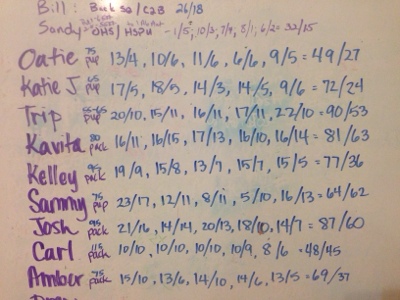 Bill: Back SQ/C2B 26/18
Sandy OHS/HSPU - 1/5, 10/3, 7/9, 5/1, 6/2 = 32/15
Oatie 75 pup 13/4, 10/6, 11/6, 6/6, 9/5 = 49/27
Katie J 65 pup 17/5, 18/5, 14/3, 14/5, 9/6 = 72/24
Trip 55-65 pup 20/10, 15/11, 16/11, 17/11, 22/10 = 90/53
Kavita 80 pack 16/11, 16/15, 17/13, 16/10, 16/14 = 81/63
Kelley 95 pack 19/9, 15/8, 13/7, 15/7, 15/5 = 77/36
Sammy 75 pup 23/17, 12/11, 8/11, 5/10, 16/13 = 64/62
Josh 95 pack 21/16, 14/14, 20/13, 18/10, 14/7 = 87/60
Carl 115 pack 10/10, 10/10, 10/10, 10/9, 8/6 = 48/45
Amber 75 pack 15/10, 13/6, 14/10, 14/6, 13/5 = 69/37